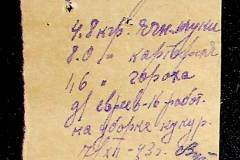 4.8 кгр. ячн. муки
8.0 " картофеля
1.6 " гороха
дl евреев-10 работ.
на уборке кукур.
/XII-43г.